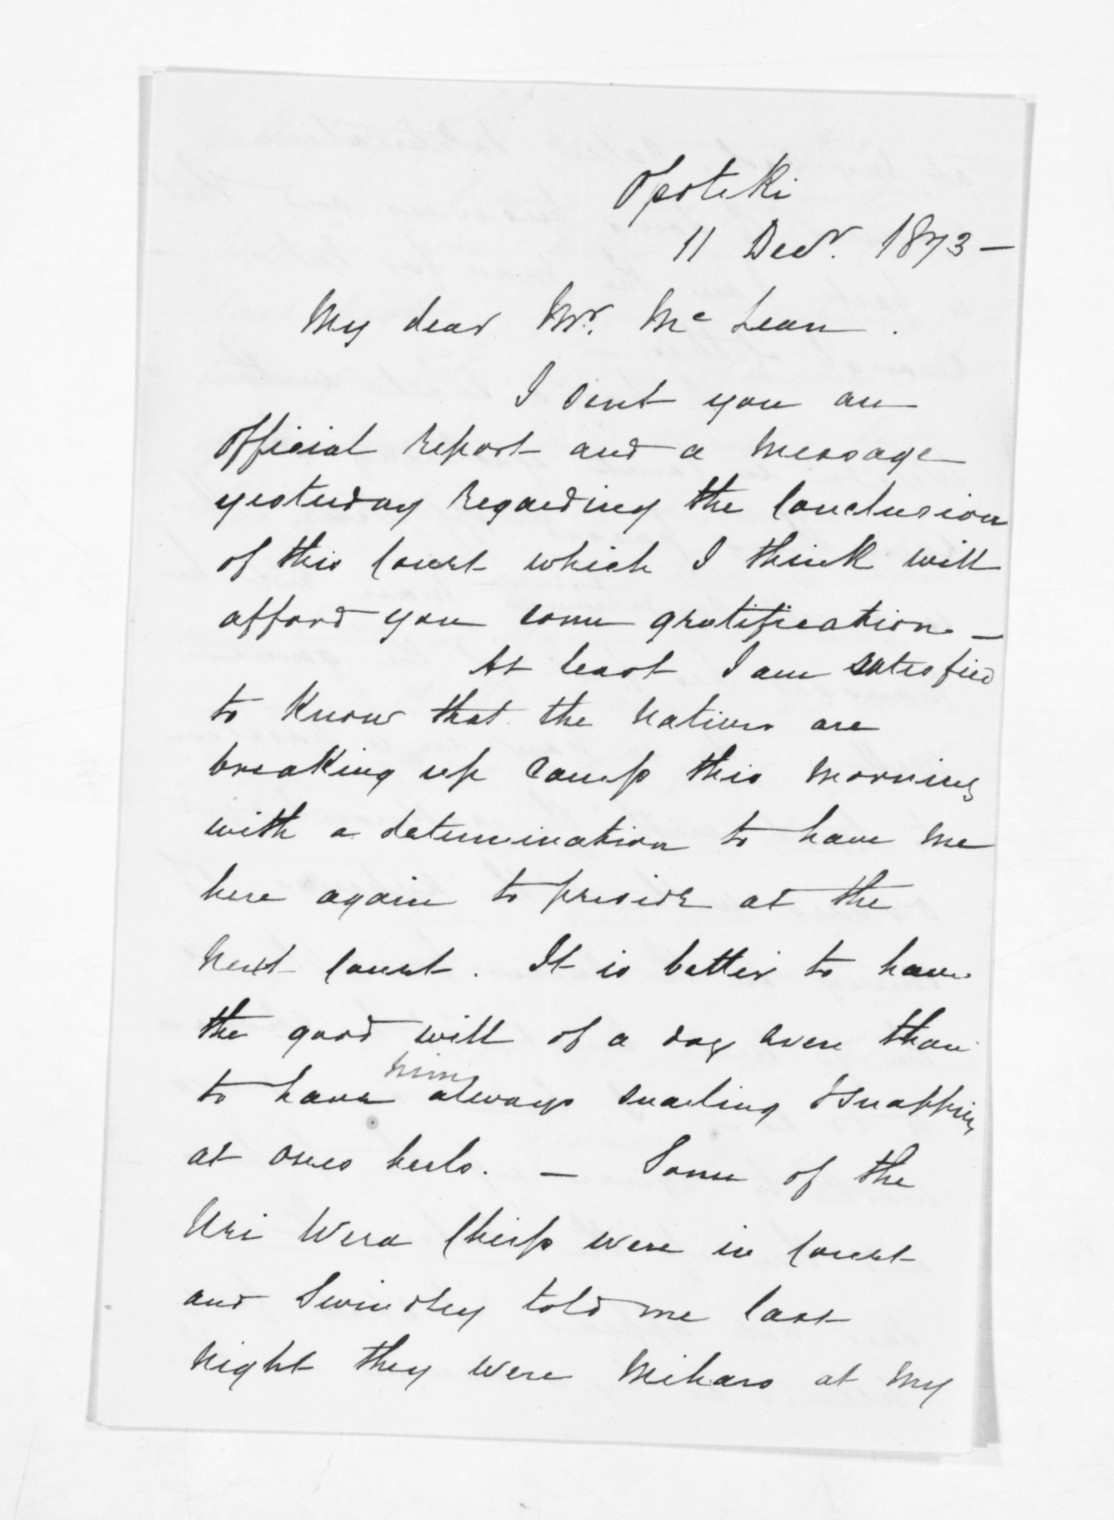 Opotiki
11 Decr. 1873 —
My dear Mr. McLean.
I sent you an
official report and a message
yesterday regarding the conclusion
of this Court which I think will
afford you some gratification —
At least I am satisfied
to know that the natives are
breaking up camp this morning
with a determination to have me
here again to preside at the
next Court. It is better to have
the good will of a dog even than
to have him always snarling & snapping
at ones heels. — Some of the
Uri Wera Chiefs were in Court
and Swindley told me last
night they were miharo at my